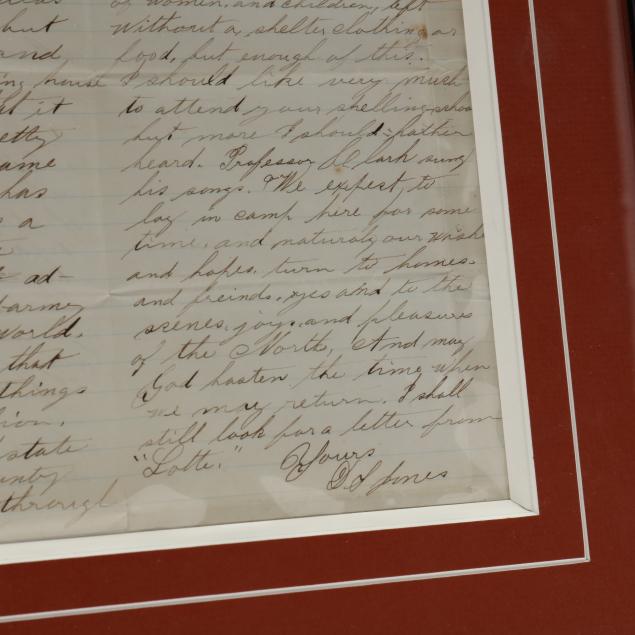 but
and,
ing house
at it
etty
ame
has
s a
ad-
army
World.
that
things
ion.
state
unty
through
of women, and children, left
without a, shelter clothing or
food, but enough of this.
I should like very much
to attend your spelling schoo
but more I should rather
heard. Professor Clark sung
his songs. We expect, to
lay in camp here for some
time, and naturaly our wishe
and hopes, turn to homes.
and freinds. yes and to the
scenes, joys, and pleasures
of the North, And may
God hasten the time, when
we may return. I shall
still look for a letter from
"Lotte."
Yours
D. S. Jones